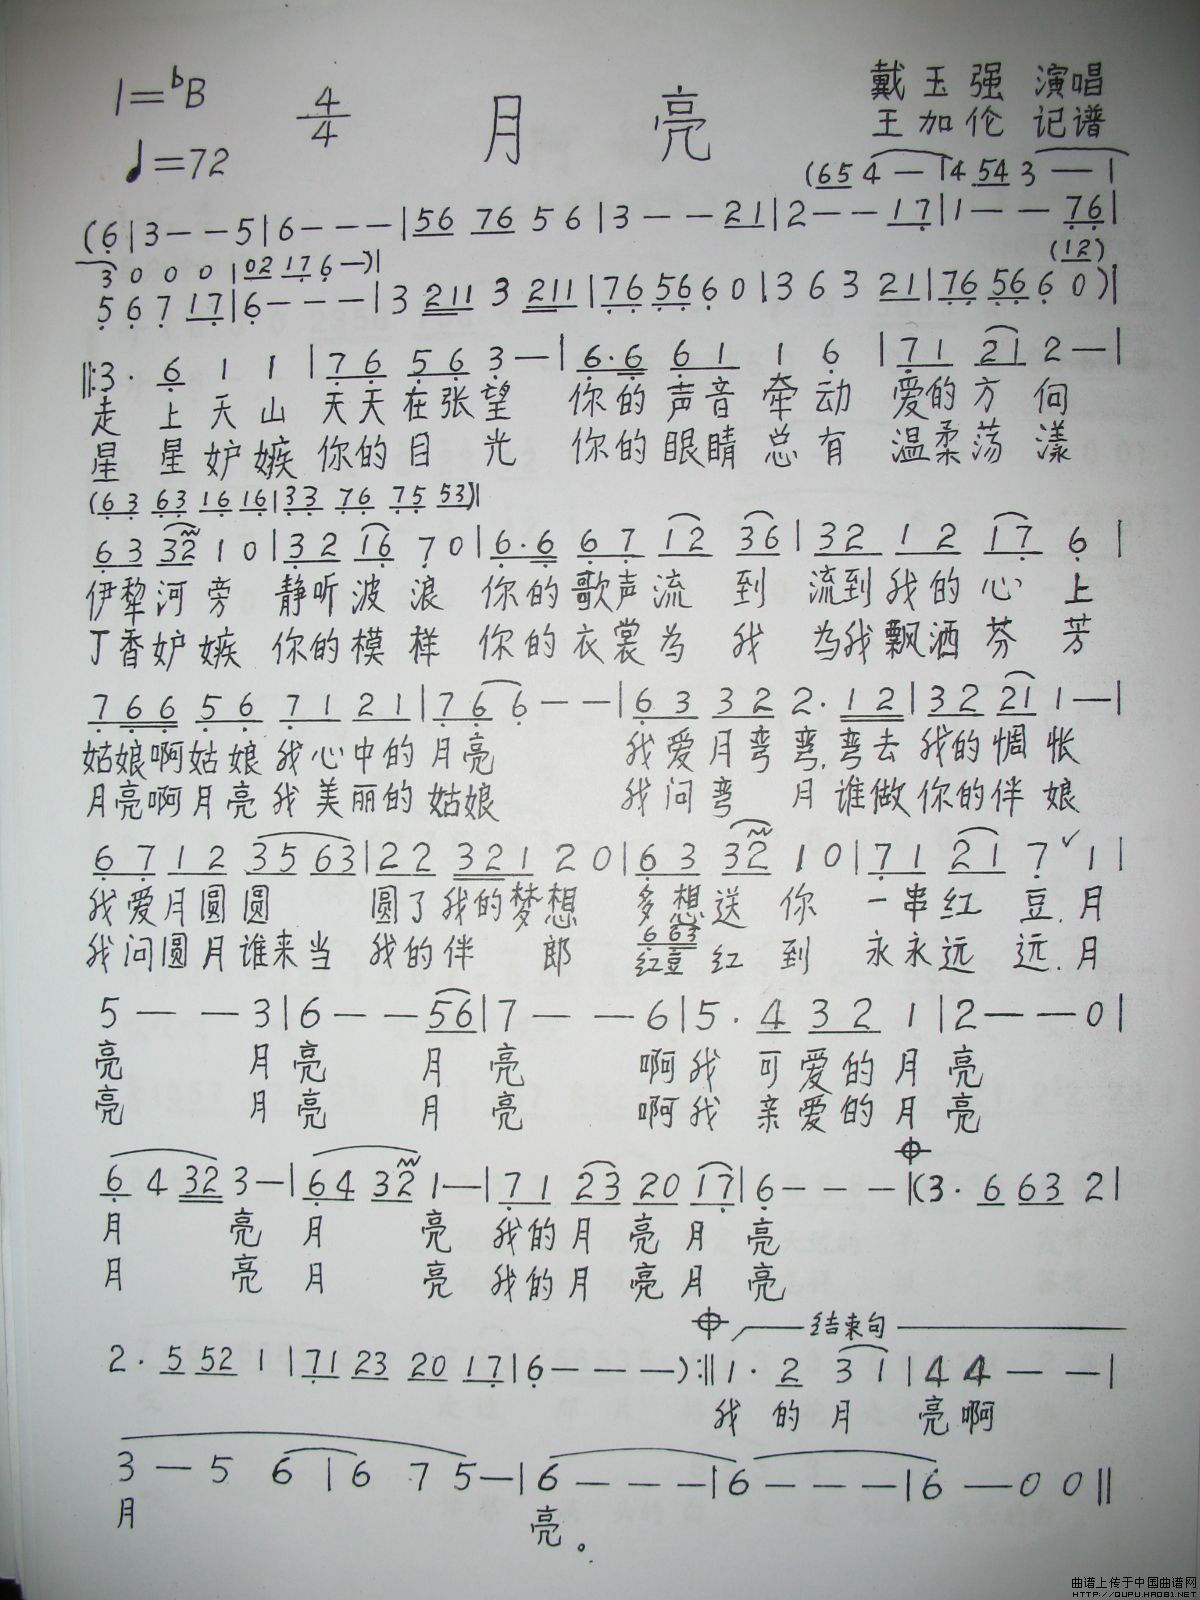 1=♭B 4/4 月亮 戴玉强 演唱
♩=72 王加伦 记谱
(65 4 — | 4 54 3 — |
(6 | 3 — — 5 | 6 — — — | 56 76 5 6 | 3 — — 21 | 2 — — 17 | 1 — — 76 |
3 0 0 0 | 02 17 6 —) | (12)
5 6 7 17 | 6 — — — | 3 211 3 211 | 76 56 6 0 | 3 6 3 21 | 76 56 6 0 ) |
‖: 3 · 6 1 1 | 76 56 3 — | 6·6 61 1 6 | 71 21 2 — |
走 上 天 山 天天在张望 你的声音牵动 爱的方向
星 星 妒嫉 你的目光 你的眼睛总有 温柔荡漾
(63 63 16 16 | 33 76 75 53) |
63 32 1 0 | 32 16 7 0 | 6·6 67 12 36 | 32 12 17 6 |
伊犁河旁 静听波浪 你的歌声流到 流到我的心上
丁香妒嫉 你的模样 你的衣裳为我 为我飘洒芬芳
766 56 71 21 | 76 6 — — | 63 322 2· 12 | 32 21 1 — |
姑娘啊姑娘我心中的月亮 我爱月弯弯,弯去我的惆怅
月亮啊月亮我美丽的姑娘 我问弯月谁做你的伴娘
67 12 35 63 | 22 321 2 0 | 63 32 1 0 | 71 21 7 ✓ 1 |
我爱月圆圆 圆了我的梦想 多想送你 一串红豆,月
6 63
我问圆月谁来当 我的伴郎 红豆红到 永永远远,月
5 — — 3 | 6 — — 56 | 7 — — 6 | 5 · 4 32 1 | 2 — — 0 |
亮 月亮 月亮 啊我可爱的月亮
亮 月亮 月亮 啊我亲爱的月亮
6 4 32 3 — | 64 32 1 — | 71 23 20 17 | 6 — — — | (3 · 6 63 2 |
月 亮 月 亮 我的月亮月亮
月 亮 月 亮 我的月亮月亮
结束句
2 · 5 52 1 | 71 23 20 17 | 6 — — — ) :‖ 1 · 2 3 1 | 4 4 — — |
我的月 亮啊
3 — 5 6 | 6 7 5 — | 6 — — — | 6 — — — | 6 — 0 0 ‖
月 亮。
曲谱上传于中国曲谱网
HTTP://QUPU.HAO81.NET